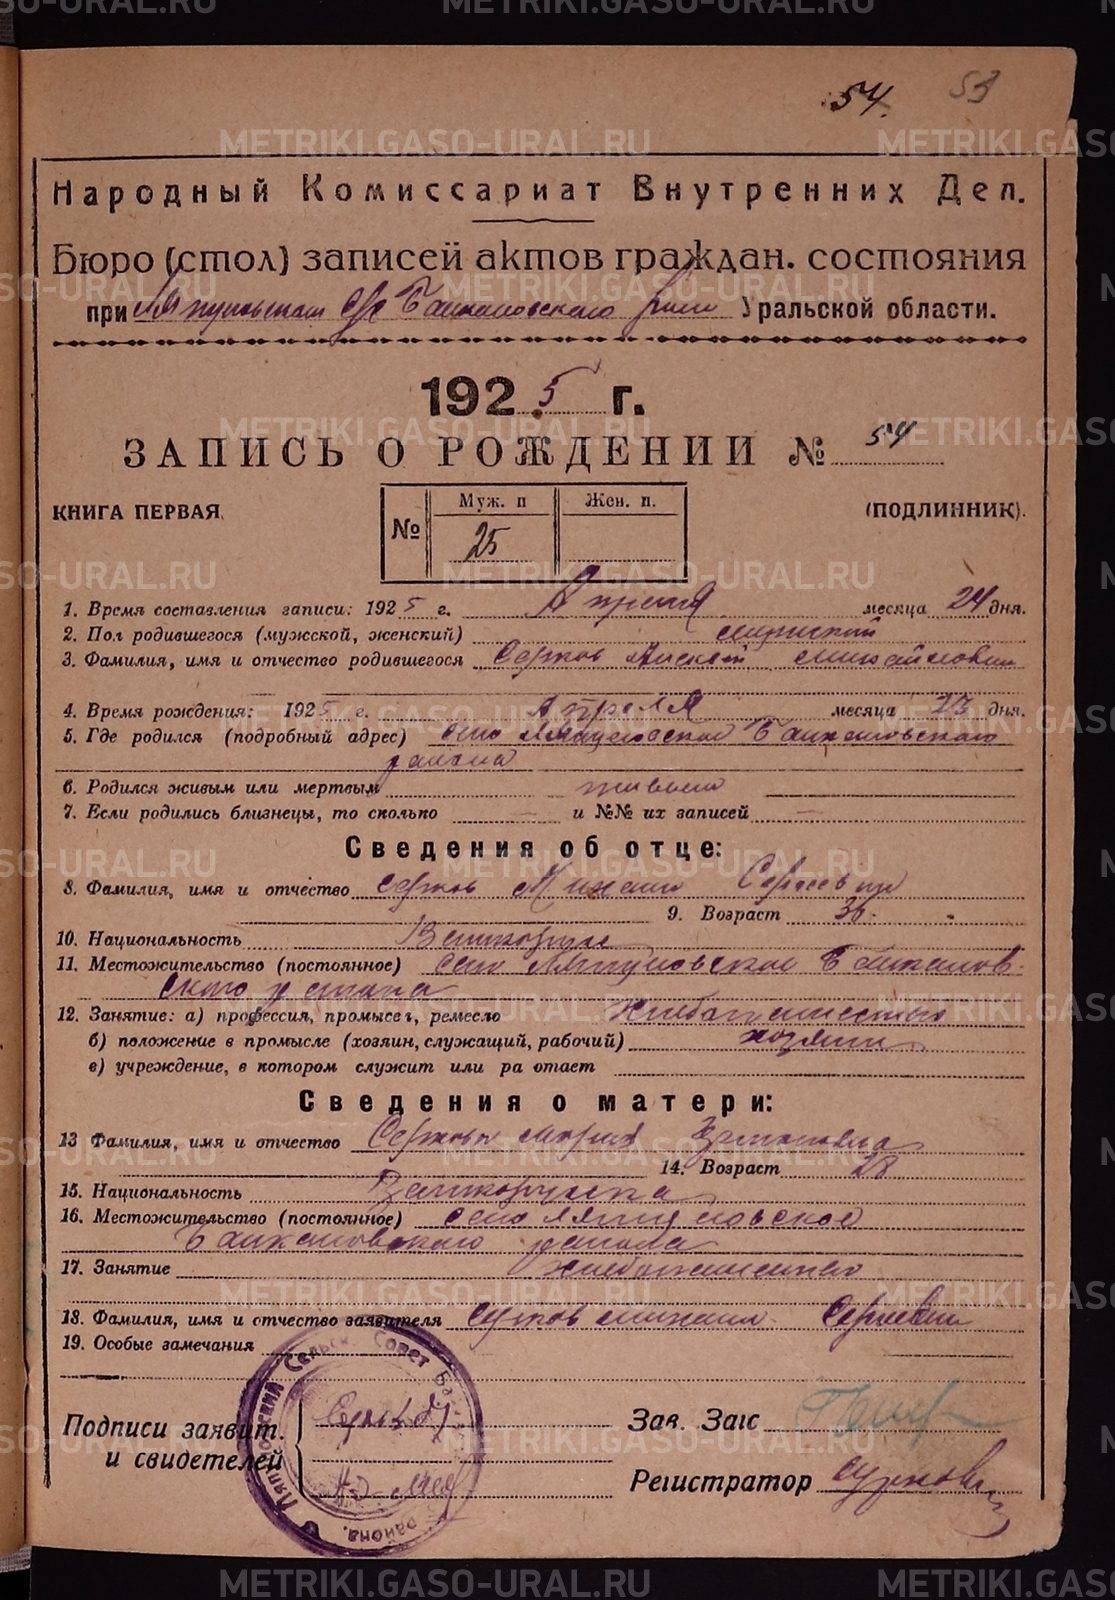 54. 53
Народный Комиссариат Внутренних Дел.
Бюро (стол) записей актов граждан. состояния
при Ляпуновском с/с Байкаловского Уральской области.
1925 г.
ЗАПИСЬ О РОЖДЕНИИ № 54
КНИГА ПЕРВАЯ. (ПОДЛИННИК).
№ Муж. п Жен. п.
25
1. Время составления записи: 1925 г. Апреля месяца 24 дня.
2. Пол родившегося (мужской, женский) мужской
3. Фамилия, имя и отчество родившегося Алексей Михайлович
4. Время рождения: 1925 г. Апреля месяца 23 дня.
5. Где родился (подробный адрес) село Ляпуновское Байкаловского
района
6. Родился живым или мертвым живым
7. Если родились близнецы, то сколько — и №№ их записей —
Сведения об отце:
8. Фамилия, имя и отчество Михаил Сергеевич
9. Возраст 36.
10. Национальность
11. Местожительство (постоянное) село Ляпуновское Байкалов-
ского района
12. Занятие: а) профессия, промысел, ремесло хлебопашество
б) положение в промысле (хозяин, служащий, рабочий) хозяин
в) учреждение, в котором служит или ра отает
Сведения о матери:
13 Фамилия, имя и отчество Мария
14. Возраст 28
15. Национальность
16. Местожительство (постоянное) село Ляпуновское
Байкаловского района
17. Занятие хлебопашество
18. Фамилия, имя и отчество заявителя Михаил Сергеевич
19. Особые замечания
Подписи заявит. Зав. Загс
и свидетелей
Регистратор
Ляпуновский Сельск. Совет района.
METRIKI.GASO-URAL.RU